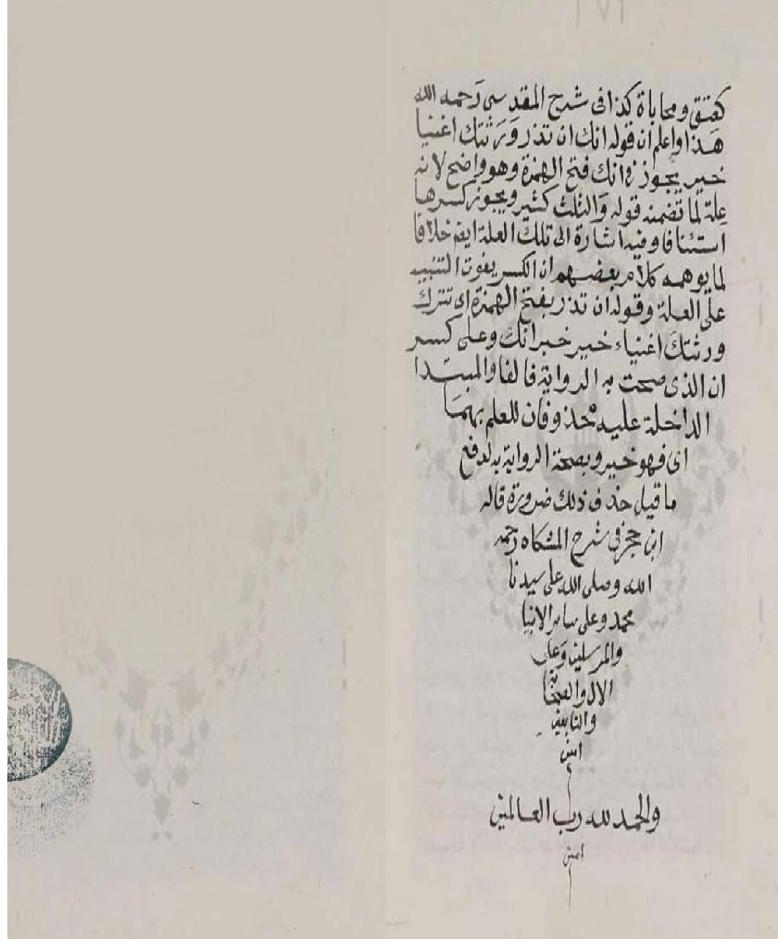 كعتق ومحاباة كذا فى شرح المقدسى رَحمه الله
هَذا واعلم ان قوله انك ان تذر وَرَثتك اغنيا
خير يجوز فى انك فتح الهمزة وهو واضح لانه
عِلة لما تضمنه قوله وَالثلث كثير ويجوز كسرها
استئنافا وفيه اشارة الى تلك العلة ايضا خلافا
لما يوهمه كلام بعضهم ان الكسر يفوت التنبيه
على العلة وقوله ان تذر بفتح الهمزة اى تترك
ورثتك اغنياء خير خبر انك وعلى كسر
ان الذى صحت به الرواية فالفا والمبتدا
الداخلة عليه محذوفان للعلم بهما
اى فهو خير وبصحة الرواية به اندفع
ما قيل حذف ذلك ضرورة قاله
ابن حجر فى شرح المشكاه رحمه
الله وصلى الله على سيدنا
محمد وعلى ساير الانبيا
والمرسلين وَعلى
الال والصحابة
والتابعين
امين
والحمد لله رب العالمين
امين